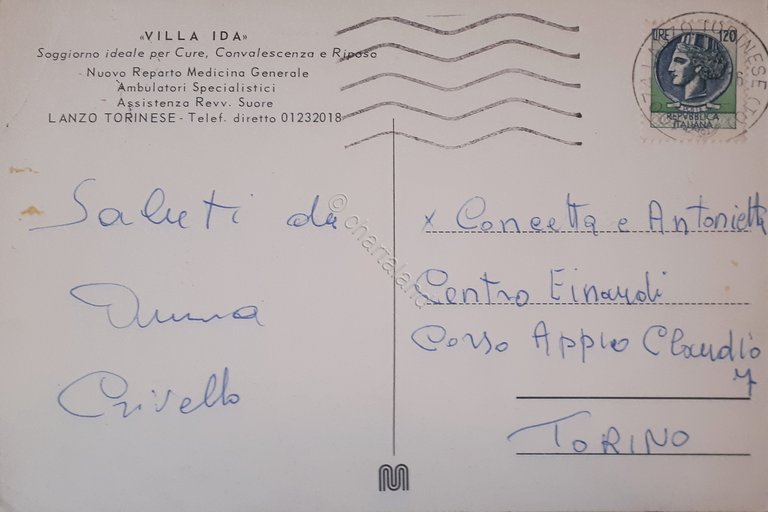 «VILLA IDA»
Soggiorno ideale per Cure, Convalescenza e Riposo
Nuovo Reparto Medicina Generale
Ambulatori Specialistici
Assistenza Revv. Suore
LANZO TORINESE - Telef. diretto 01232018
LIRE 120
REPVBBLICA
ITALIANA
LANZO TORINESE
Saluti da
Anna
Crivello
x Concetta e Antonietta
Centro Einaudi
Corso Appio Claudio
7
TORINO